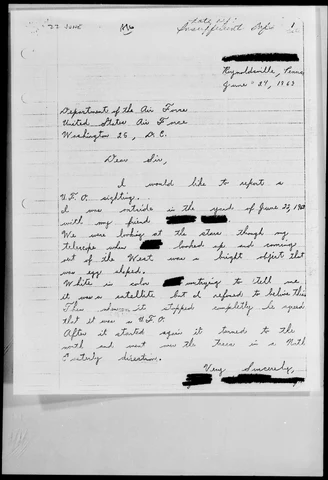 22 June
Insufficient Info
1
Reynoldsville, Penna
June 24, 1963
Department of the Air Force
United States Air Force
Washington 25, D.C.
Dear Sir,
I would like to report a
U.F.O. sighting.
I was outside in the yard of June 22, 1963
with my friend
We were looking at the stars though my
telescope when looked up and coming
out of the West was a bright object that
was egg shaped.
White in color trying to tell me
it was a satellite but I refused to believe this
Then when it stopped completly he agreed
that it was a U.F.O.
After it started again it turned to the
north and went over the trees in a North
Easterly direction.
Very Sincerely,